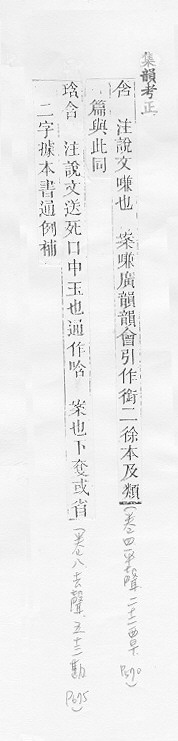 集韻考正
含 注說文嗛也 案嗛廣韻韻會引作銜二徐本及類
篇與此同
(卷四平聲 二十二覃 P.690)
琀含 注說文送死口中玉也通作唅 案也下奪或省
二字據本書通例補
(卷八去聲 五十三勘 P.695)